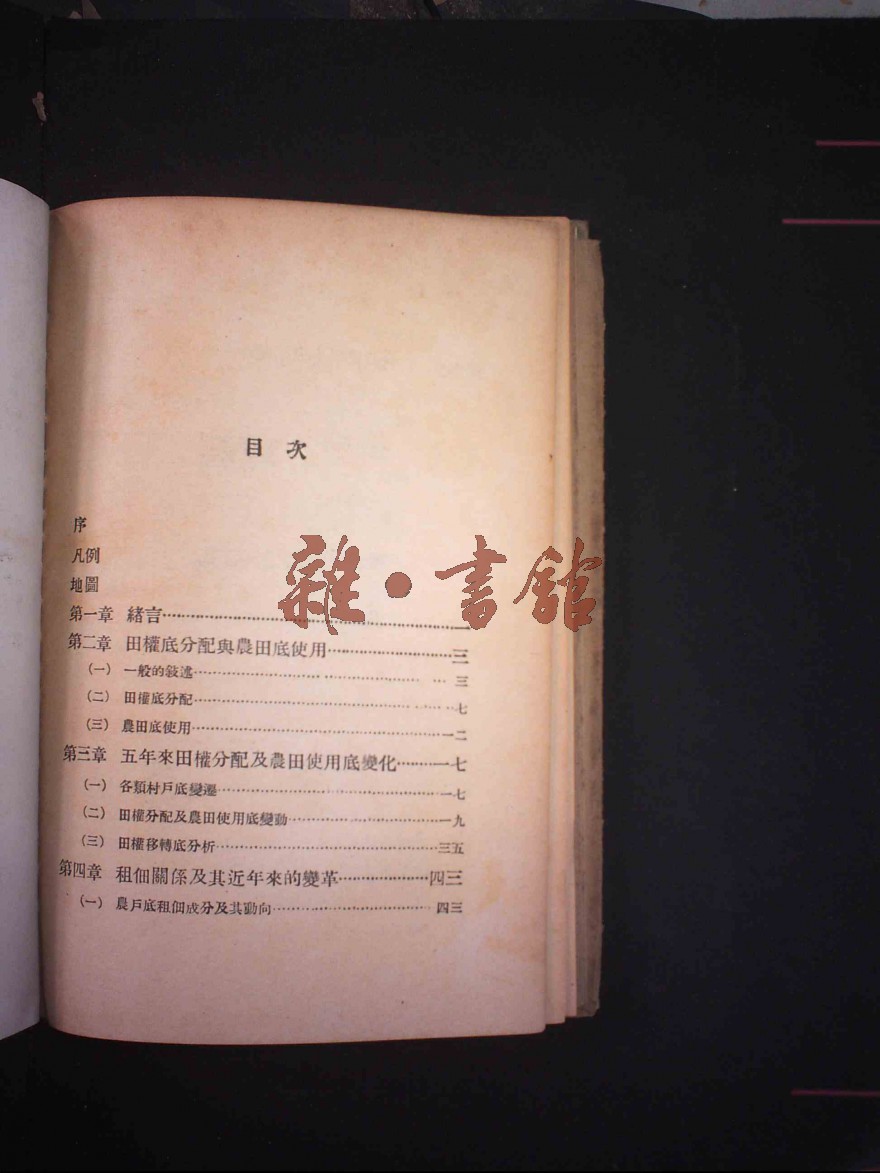 目次
序
凡例
地圖
第一章 緒言……一
第二章 田權底分配與農田底使用……三
（一） 一般的敍述……三
（二） 田權底分配……七
（三） 農田底使用……一二
第三章 五年來田權分配及農田使用底變化……一七
（一） 各類村戶底變遷……一七
（二） 田權分配及農田使用底變動……一九
（三） 田權移轉底分析……三五
第四章 租佃關係及其近年來的變革……四三
（一） 農戶底租佃成分及其動向……四三
雜·書館